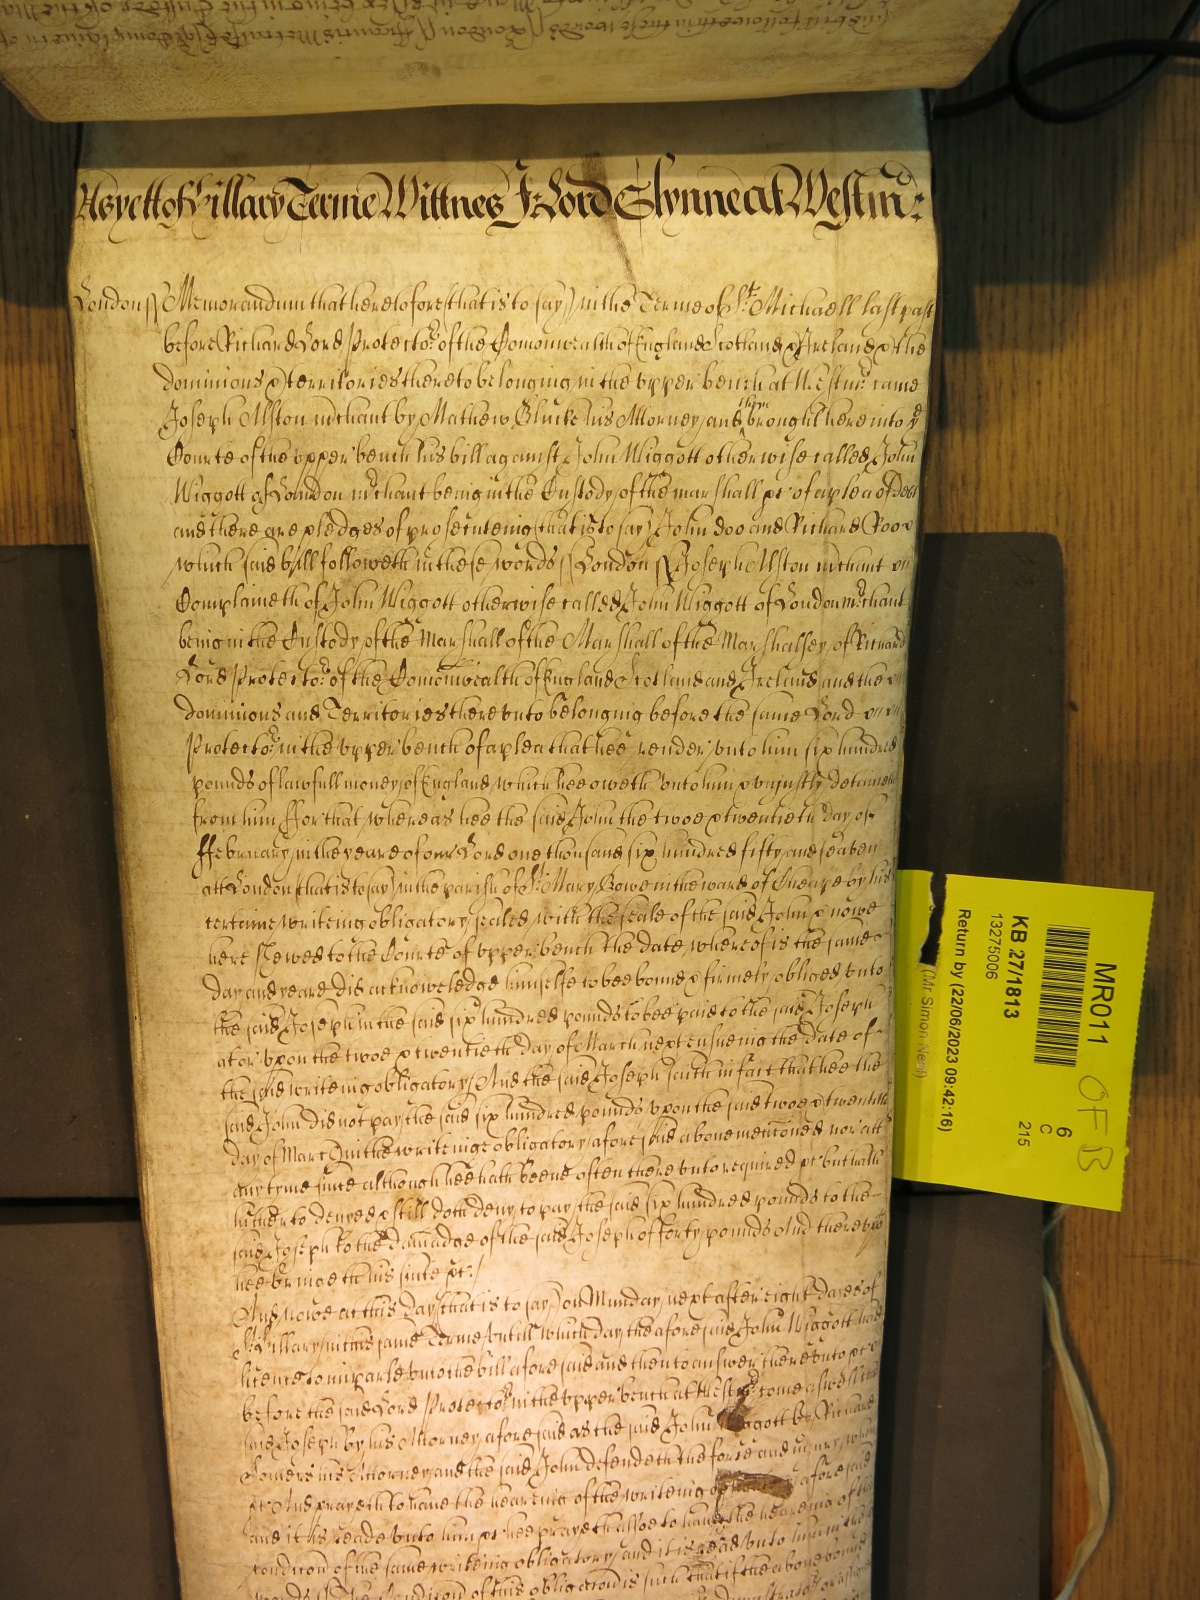 As yett of Hillary Terme Wittnes J: Lord Glynne att Westmr:
London ss Memorandum that heretofore (that is to say) in the Terme of St. Michaell last past
before Richard Lord Protector of the Comonwealth of England Scotland & Ireland & the
dominions & territories thereto belonging in the upper bench at Westmr: came
Joseph Alston mchant by Mathew Blucke his Attorney, and then brought here into ye
Courte of the upper bench his bill against John Wiggott otherwise called John
Wiggott of London mchant being in the Custody of the marshall &c of a plea of debt
and there are pledges of prosecuteing (that is to say) John doo and Richard Roo
which said bill followeth in these words ss London ss Joseph Alston mchant
Complaineth of John Wiggott otherwise called John Wiggott of London mrchant
being in the Custody of the Marshall of the Marshall of the Marshalsey of Richard
Lord Protector of the Comonwealth of England Scotland and Ireland and the
dominions and Territories thereunto belonging before the same Lord
Protector in the upper bench of a plea that hee render unto him six hundred
pounds of lawfull money of England which hee oweth unto him & unjustly detaineth
from him ffor that whereas hee the said John the twoe & twentieth day of
ffebruary in the yeare of our Lord one thousand six hundred fifty and seaven
att London (that is to say) in the parish of St. Mary Bowe in the ward of Cheape by his
certaine writeing obligatory sealed with the seale of the said John & nowe
here shewed to the Courte of upper bench the date whereof is the same
day and yeare did acknowledge himselfe to bee bound & firmely obliged unto
the said Joseph in the said six hundred pounds to bee paid to the said Joseph
att or upon the twoe & twentieth day of March next ensueing the date of
the said writeing obligatory And the said Joseph saith in fact that hee the
said John did not pay the said six hundred pounds upon the said twoe & twentieth
day of March in the writeinge obligatory aforesaid above mentioned nor att
any tyme since although hee hath beene often thereunto required &c but hath
hitherto denyed & still doth deny to pay the said six hundred pounds to the
said Joseph to the damadge of the said Joseph of forty pounds And thereupon
hee bringeth his suite &c:/
And nowe at this day (that is to say) on Munday next after eight dayes of
St. Hillary in this same Terme untill which day the aforesaid John Wiggott had
licence to imparle unto the bill aforesaid and then to answer thereunto &c
before the said Lord Protector in the upper bench at Westmr: come aswell the
said Joseph by his Attorney aforesaid as the said John Wiggott by Richard
Somers his Attorney and the said John defendeth the force and injury when
&c And prayeth to have the heareing of the writeing aforesaid
and it is reade unto him &c hee prayeth alsoe to have the heareing of the
condicon of the same writeing obligatory and it is read unto him in these
Condicon of this obligacon is such that if the above bound
MR011 OFB
6
C
215
KB 27/1813
13275006
Return by (22/06/2023 09:42:16)
(Mr Simon Neal)